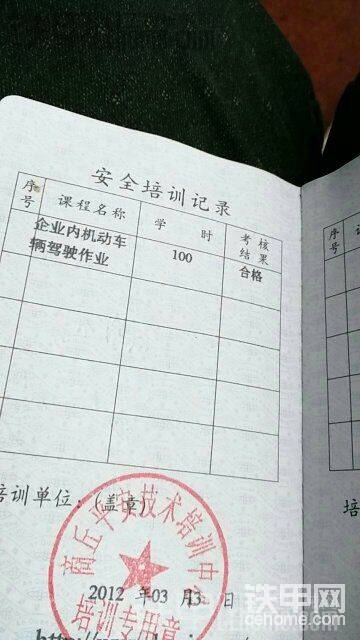 安全培训记录
序号 课程名称 学 时 考核结果 序号
企业内机动车辆驾驶作业 100 合格
培训单位:(盖章) 培
商丘平安技术培训中心
培训专用章
2012 年 03 月 3 日
铁甲网
cehome.com